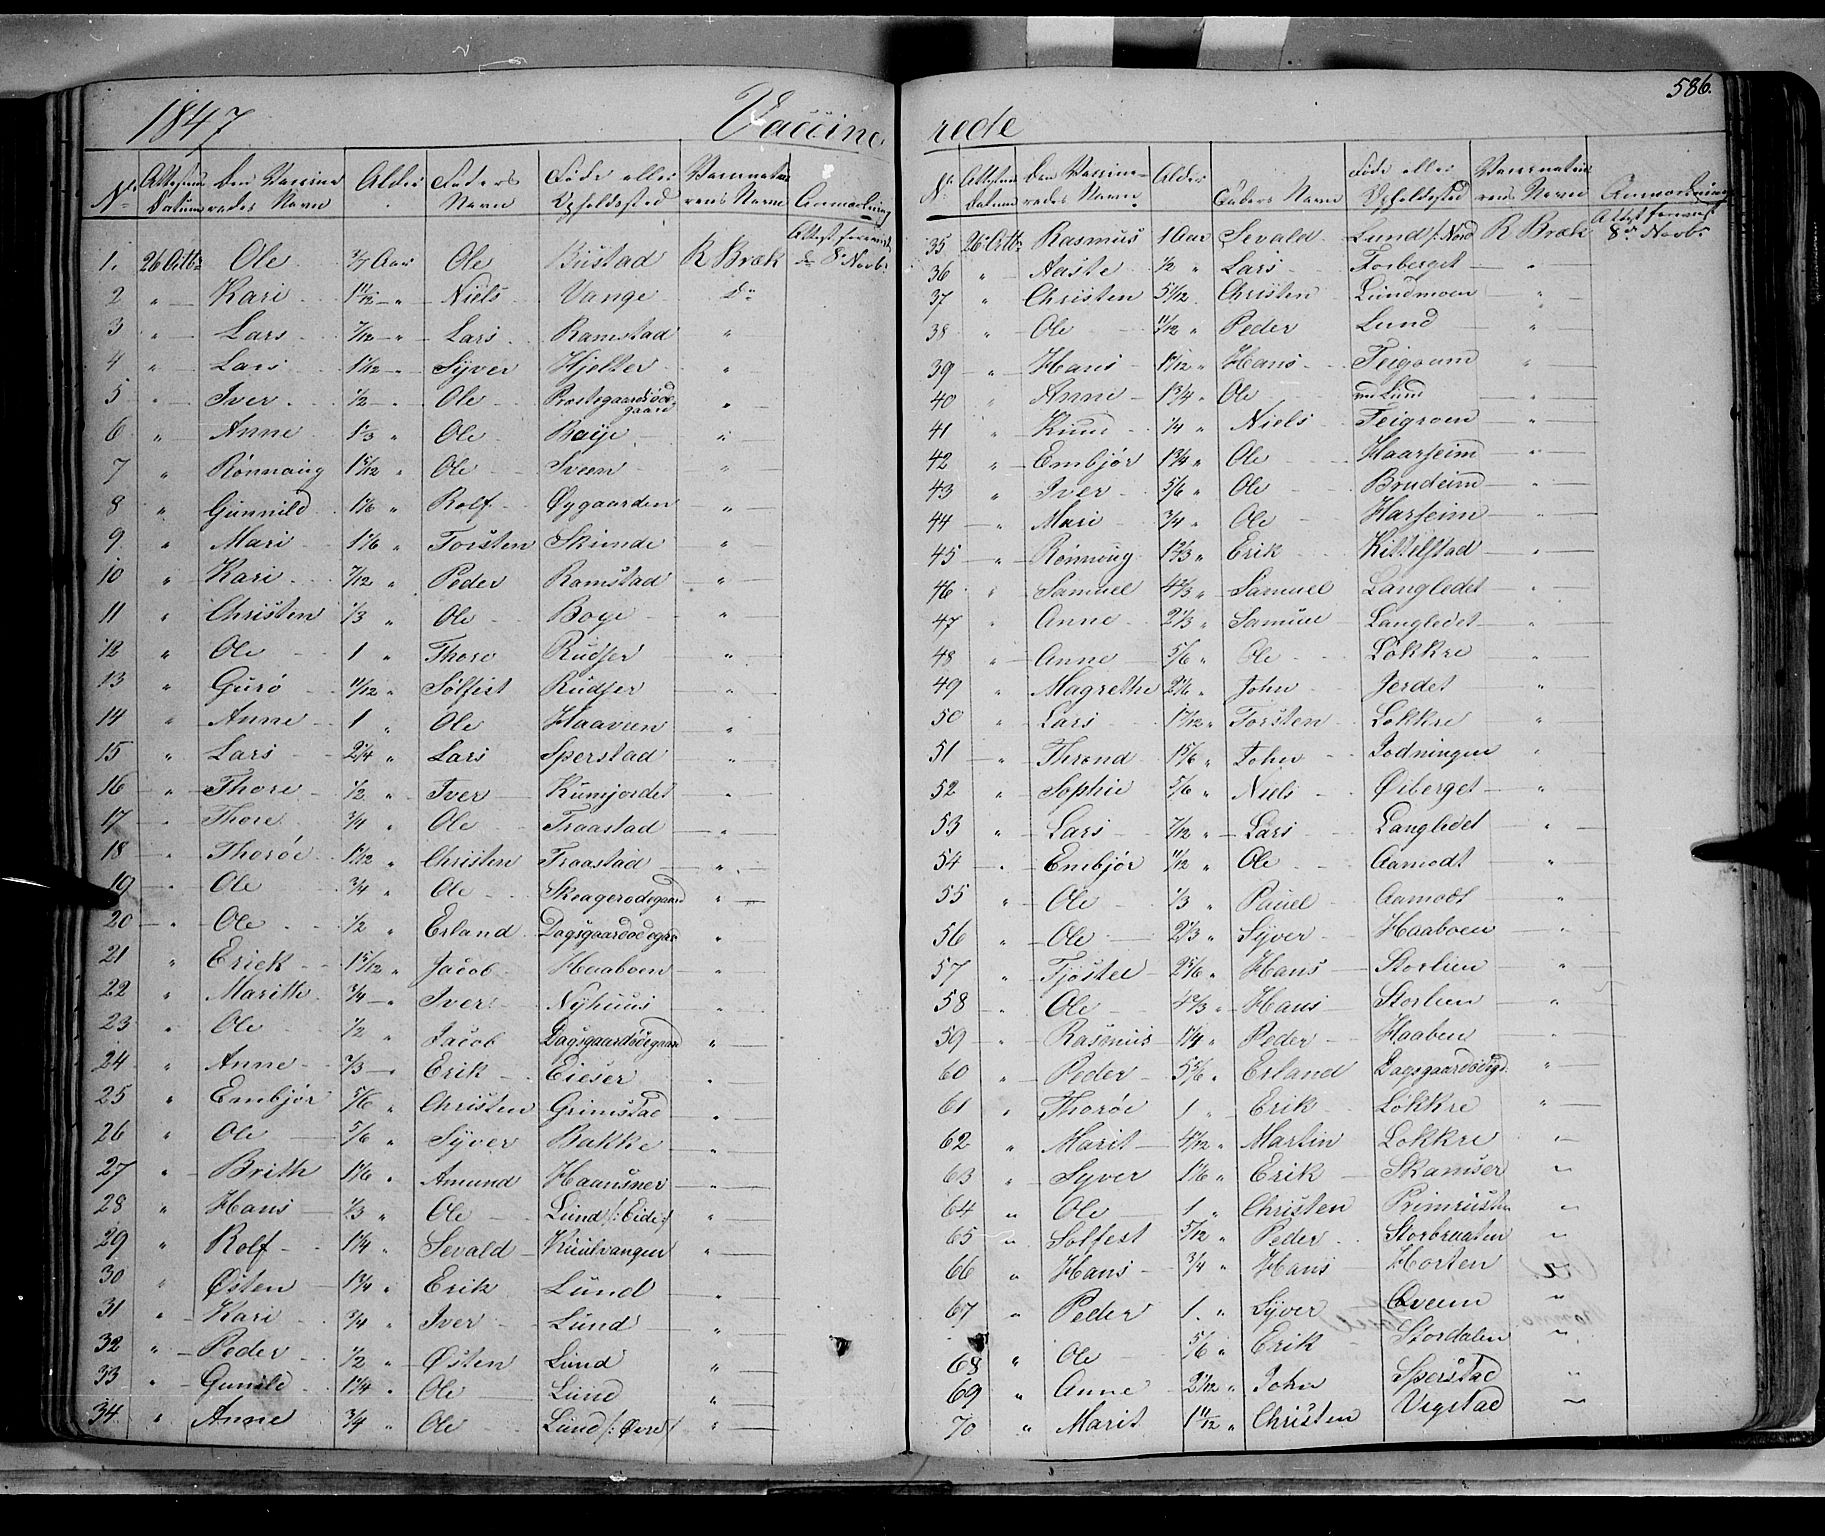 586.
1847 Vaccine rede
No Attestens Datum Den Vaccineredes Navn Alder Faders Navn Føde eller Opholdssted Vaccinateurens Navn Anmærkning
1. 26 Octbr Ole Aar Ole Bustad R Bræk Attest d 8 Novbr
2 " Kari 1 11/12 " Niels Vange Do
3 " Lars 7/12 " Lars Ramstad "
4 " Lars 1 1/12 " Syver Hjelter "
5 " Iver 1/2 " Ole Prestegaardsødegaard "
6 " Anne 1 1/3 " Ole Bøye "
7 " Rønnaug 1 5/12 " Ole Sveen "
8 " Gunnild 1 1/6 " Rolf Øygaarden "
9 " Mari 1 1/6 " Torsten Skinde "
10 " Kari 7/12 " Peder Ramstad "
11 " Christen 1/3 " Ole Boye "
12 " Ole 1 " Thore Rudser "
13 " Guro 11/12 " Sølfest Rudser "
14 " Anne 1 " Ole Haavien "
15 " Lars 2 1/4 " Lars Sperstad "
16 " Thore 1/2 " Iver Kumjordet "
17 " Thore 3/4 " Ole Traastad "
18 " Thorøe 1 1/12 " Christen Traastad "
19 " Ole 3/4 " Ole Skeagerødegaard "
20 " Ole 1/2 " Erland Dagsgaardødegaa "
21 " Erick 1 5/12 " Jacob Haaboen "
22 " Marith 3/4 " Iver Nyhuus "
23 " Ole 1/2 " Jacob Dagsgaardsødegaard "
24 " Anne 2/3 " Erik Eieser "
25 " Embjør 5/6 " Christen Grimstad "
26 " Ole 5/6 " Syver Bakke "
27 " Brith 1 1/6 " Amund Haansner "
28 " Hans 1/3 " Ole Lund /: Eide :/ "
29 " Rolf 1 1/4 " Sevald Kuulvangen "
30 " Østen 1 3/4 " Erik Lund "
31 " Kari 3/4 " Iver Lund "
32 " Peder 1/2 " Østen Lund "
33 " Gunild 1 1/4 " Ole Lund "
34 " Anne 3/4 " Ole Lund /: Øvre / "
No Attestens Datum Den Vaccineredes Navn Alder Faders Navn Føde eller Opholdssted Vaccinateurens Navn Anmærkning
35 26 Octbr Rasmus 1 Aar Sevald Lund /: Nord R Bræk Attest 8de Novbr
36 " Aaste 1/2 " Lars Forberget "
37 " Christen 5 1/12 Christen Lundmoen "
38 " Ole 11/12 " Peder Lund "
39 " Hans " Hans "
40 " Anne 1 3/4 " Ole Lund "
41 " Knud 1/4 " Niels Teigroen "
42 " Embjør 1 3/4 " Ole Haarseim "
43 " Iver 5/6 " Ole Brudeim "
44 " Mari 3/4 " Ole Harseim "
45 " Rønnoug 1 2/3 " Erik Kittelstad "
46 " Samuel 4 2/3 " Samuel Langledet "
47 " Anne 2 1/3 " Samuel Langledet "
48 " Anne 5/6 " Ole Løkkre "
49 " Magrethe 2 1/6 " John Jerdet "
50 " Lars " Torsten Løkkre "
51 " Thrond 1 5/6 " John Jodningen "
52 " Sophie 5/6 " Niels Øiberget "
53 " Lars 7/12 " Lars Langledet "
54 " Embjør 11/12 " Ole Aamodt "
55 " Ole 1/3 " Pauel Aamodt "
56 " Ole 2 1/3 " Syver Haaboen "
57 " Tjøstel 2 5/6 " Hans Storlien "
58 " Ole 4 2/3 " Hans Storlien "
59 " Rasmus 1 1/4 " Peder Haaben "
60 " Peder 5 5/6 " Erland Dagsgaardsødegd "
61 " Thorøe 1 " Erik Løkkre "
62 " Marit 4 1/12 " Martin Løkkre "
63 " Syver 1 1/6 " Erik Skamser "
64 " Ole 1 " Christen Primrusten "
65 " Solfest 5/12 " Peder Storbraaten "
66 " Hans 3/4 " Hans Horten "
67 " Peder 1. " Syver Qveim "
68 " Ole 5/6 " Erik Stordalen "
69 " Anne 2 1/12 " John Sperstad "
70 " Marit 1 11/12 " Christen Vigstad "